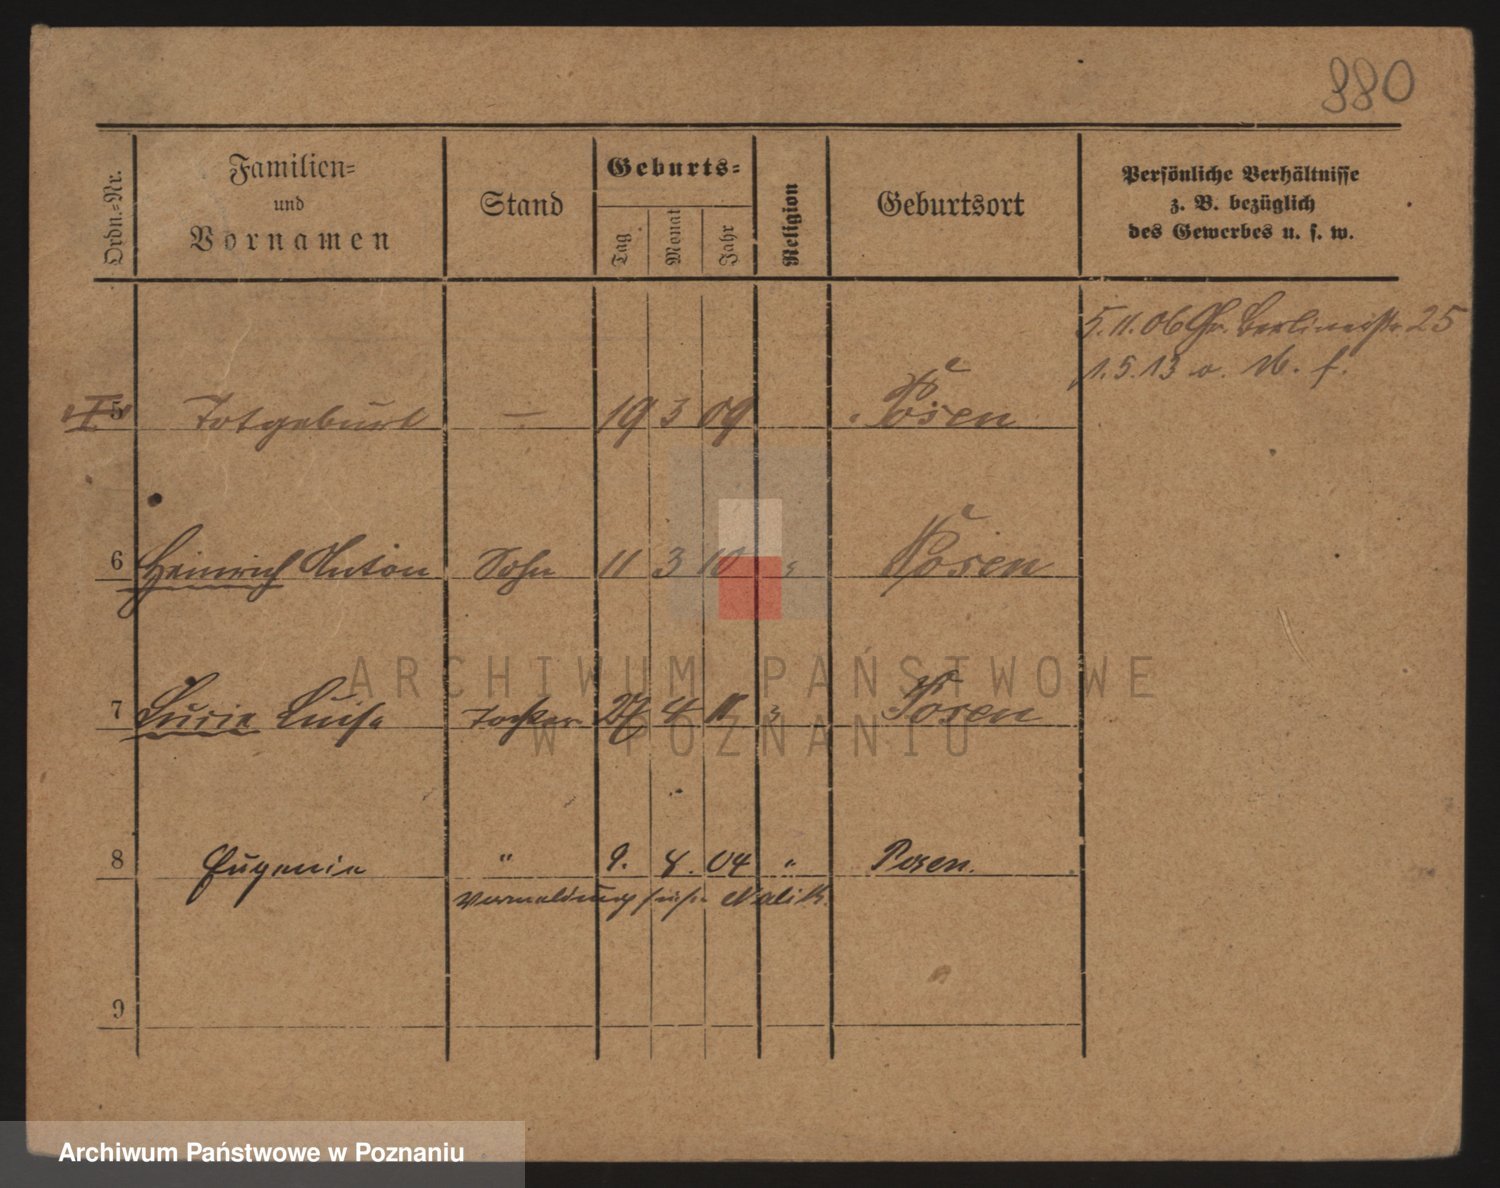 880
Ordn.-Nr.
Familien-
und
Vornamen
Stand
Geburts-
Tag
Monat
Jahr
Religion
Geburtsort
Persönliche Verhältnisse
z. B. bezüglich
des Gewerbes u. s. w.
5.11.06 Gr. Berlinerstr. 25
1.5.13 a. M. f.
5 Totgeburt — 19 3 09 Posen
6 Heinrich Anton Sohn 11 3 10 " Posen
7 Lucie Luise Tochter 27 4 11 " Posen
8 Eugenie " 9. 8. 04 " Posen.
9
ARCHIWUM PAŃSTWOWE
W POZNANIU
Archiwum Państwowe w Poznaniu